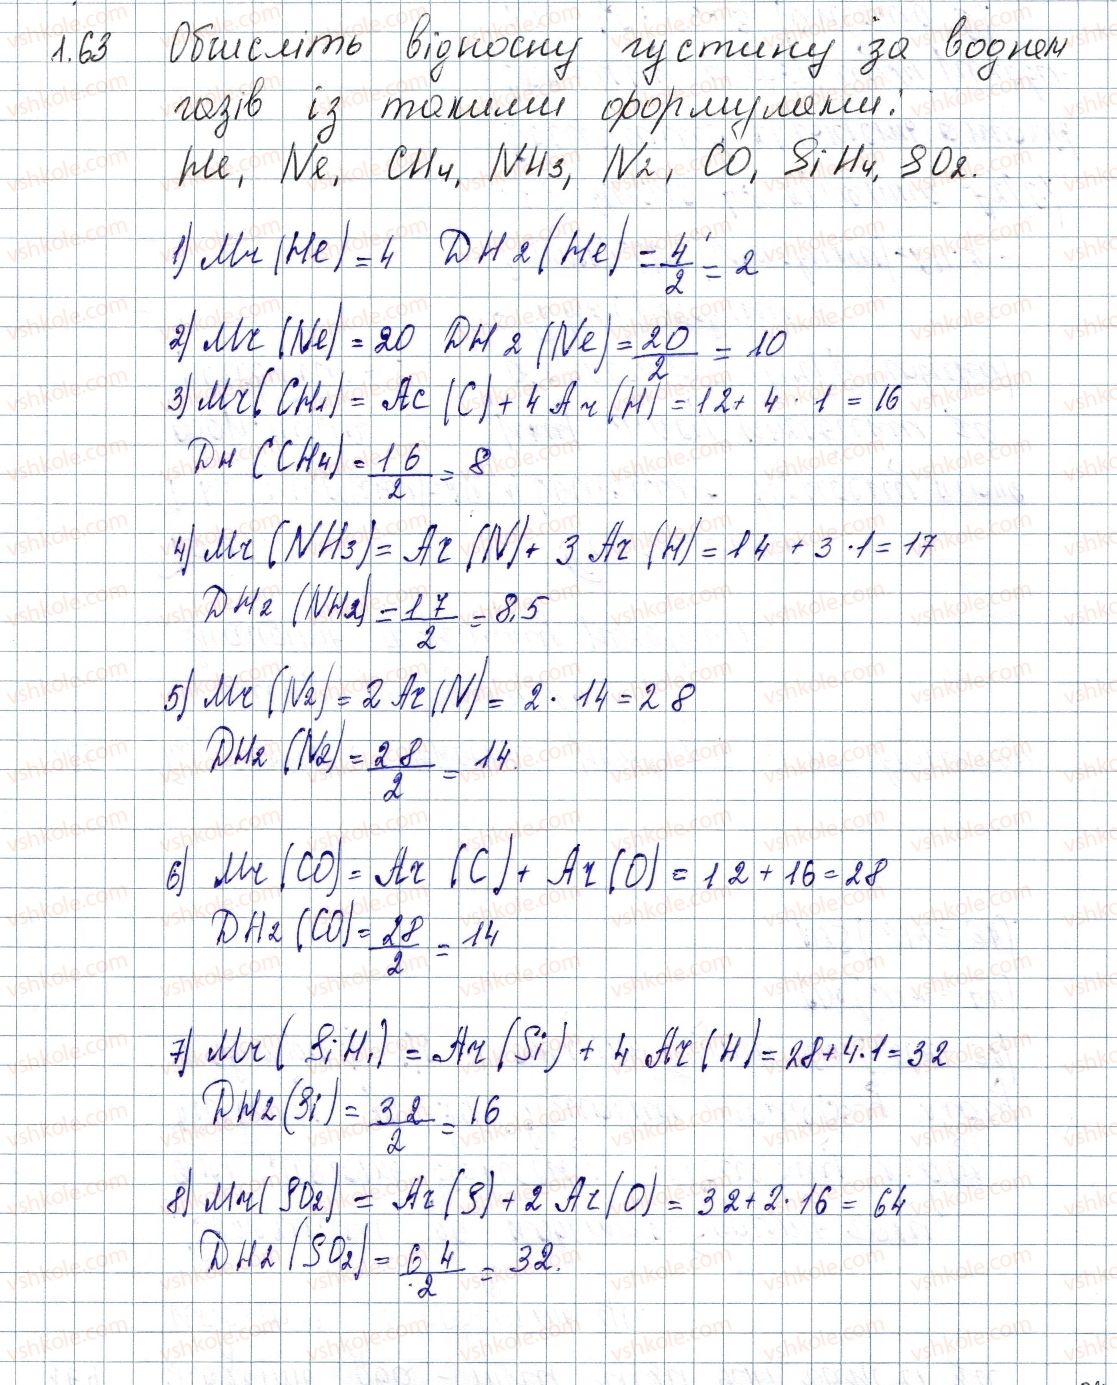 1.63 Обчисліть відносну густину за воднем
газів із такими формулами:
He, Ne, CH4, NH3, N2, CO, SiH4, SO2.
1) Mr (He) = 4 DH2 (He) = 4/2 = 2
2) Mr (Ne) = 20 DH2 (Ne) = 20/2 = 10
3) Mr (CH4) = Ac (C) + 4 Ar (H) = 12 + 4 · 1 = 16
DH (CH4) = 16/2 = 8
4) Mr (NH3) = Ar (N) + 3 Ar (H) = 14 + 3 · 1 = 17
DH2 (NH2) = 17/2 = 8,5
5) Mr (N2) = 2 Ar (N) = 2 · 14 = 28
DH2 (N2) = 28/2 = 14.
6) Mr (CO) = Ar (C) + Ar (O) = 12 + 16 = 28
DH2 (CO) = 28/2 = 14
7) Mr (SiH4) = Ar (Si) + 4 Ar (H) = 28 + 4 · 1 = 32
DH2 (Si) = 32/2 = 16
8) Mr (SO2) = Ar (S) + 2 Ar (O) = 32 + 2 · 16 = 64
DH2 (SO2) = 64/2 = 32.